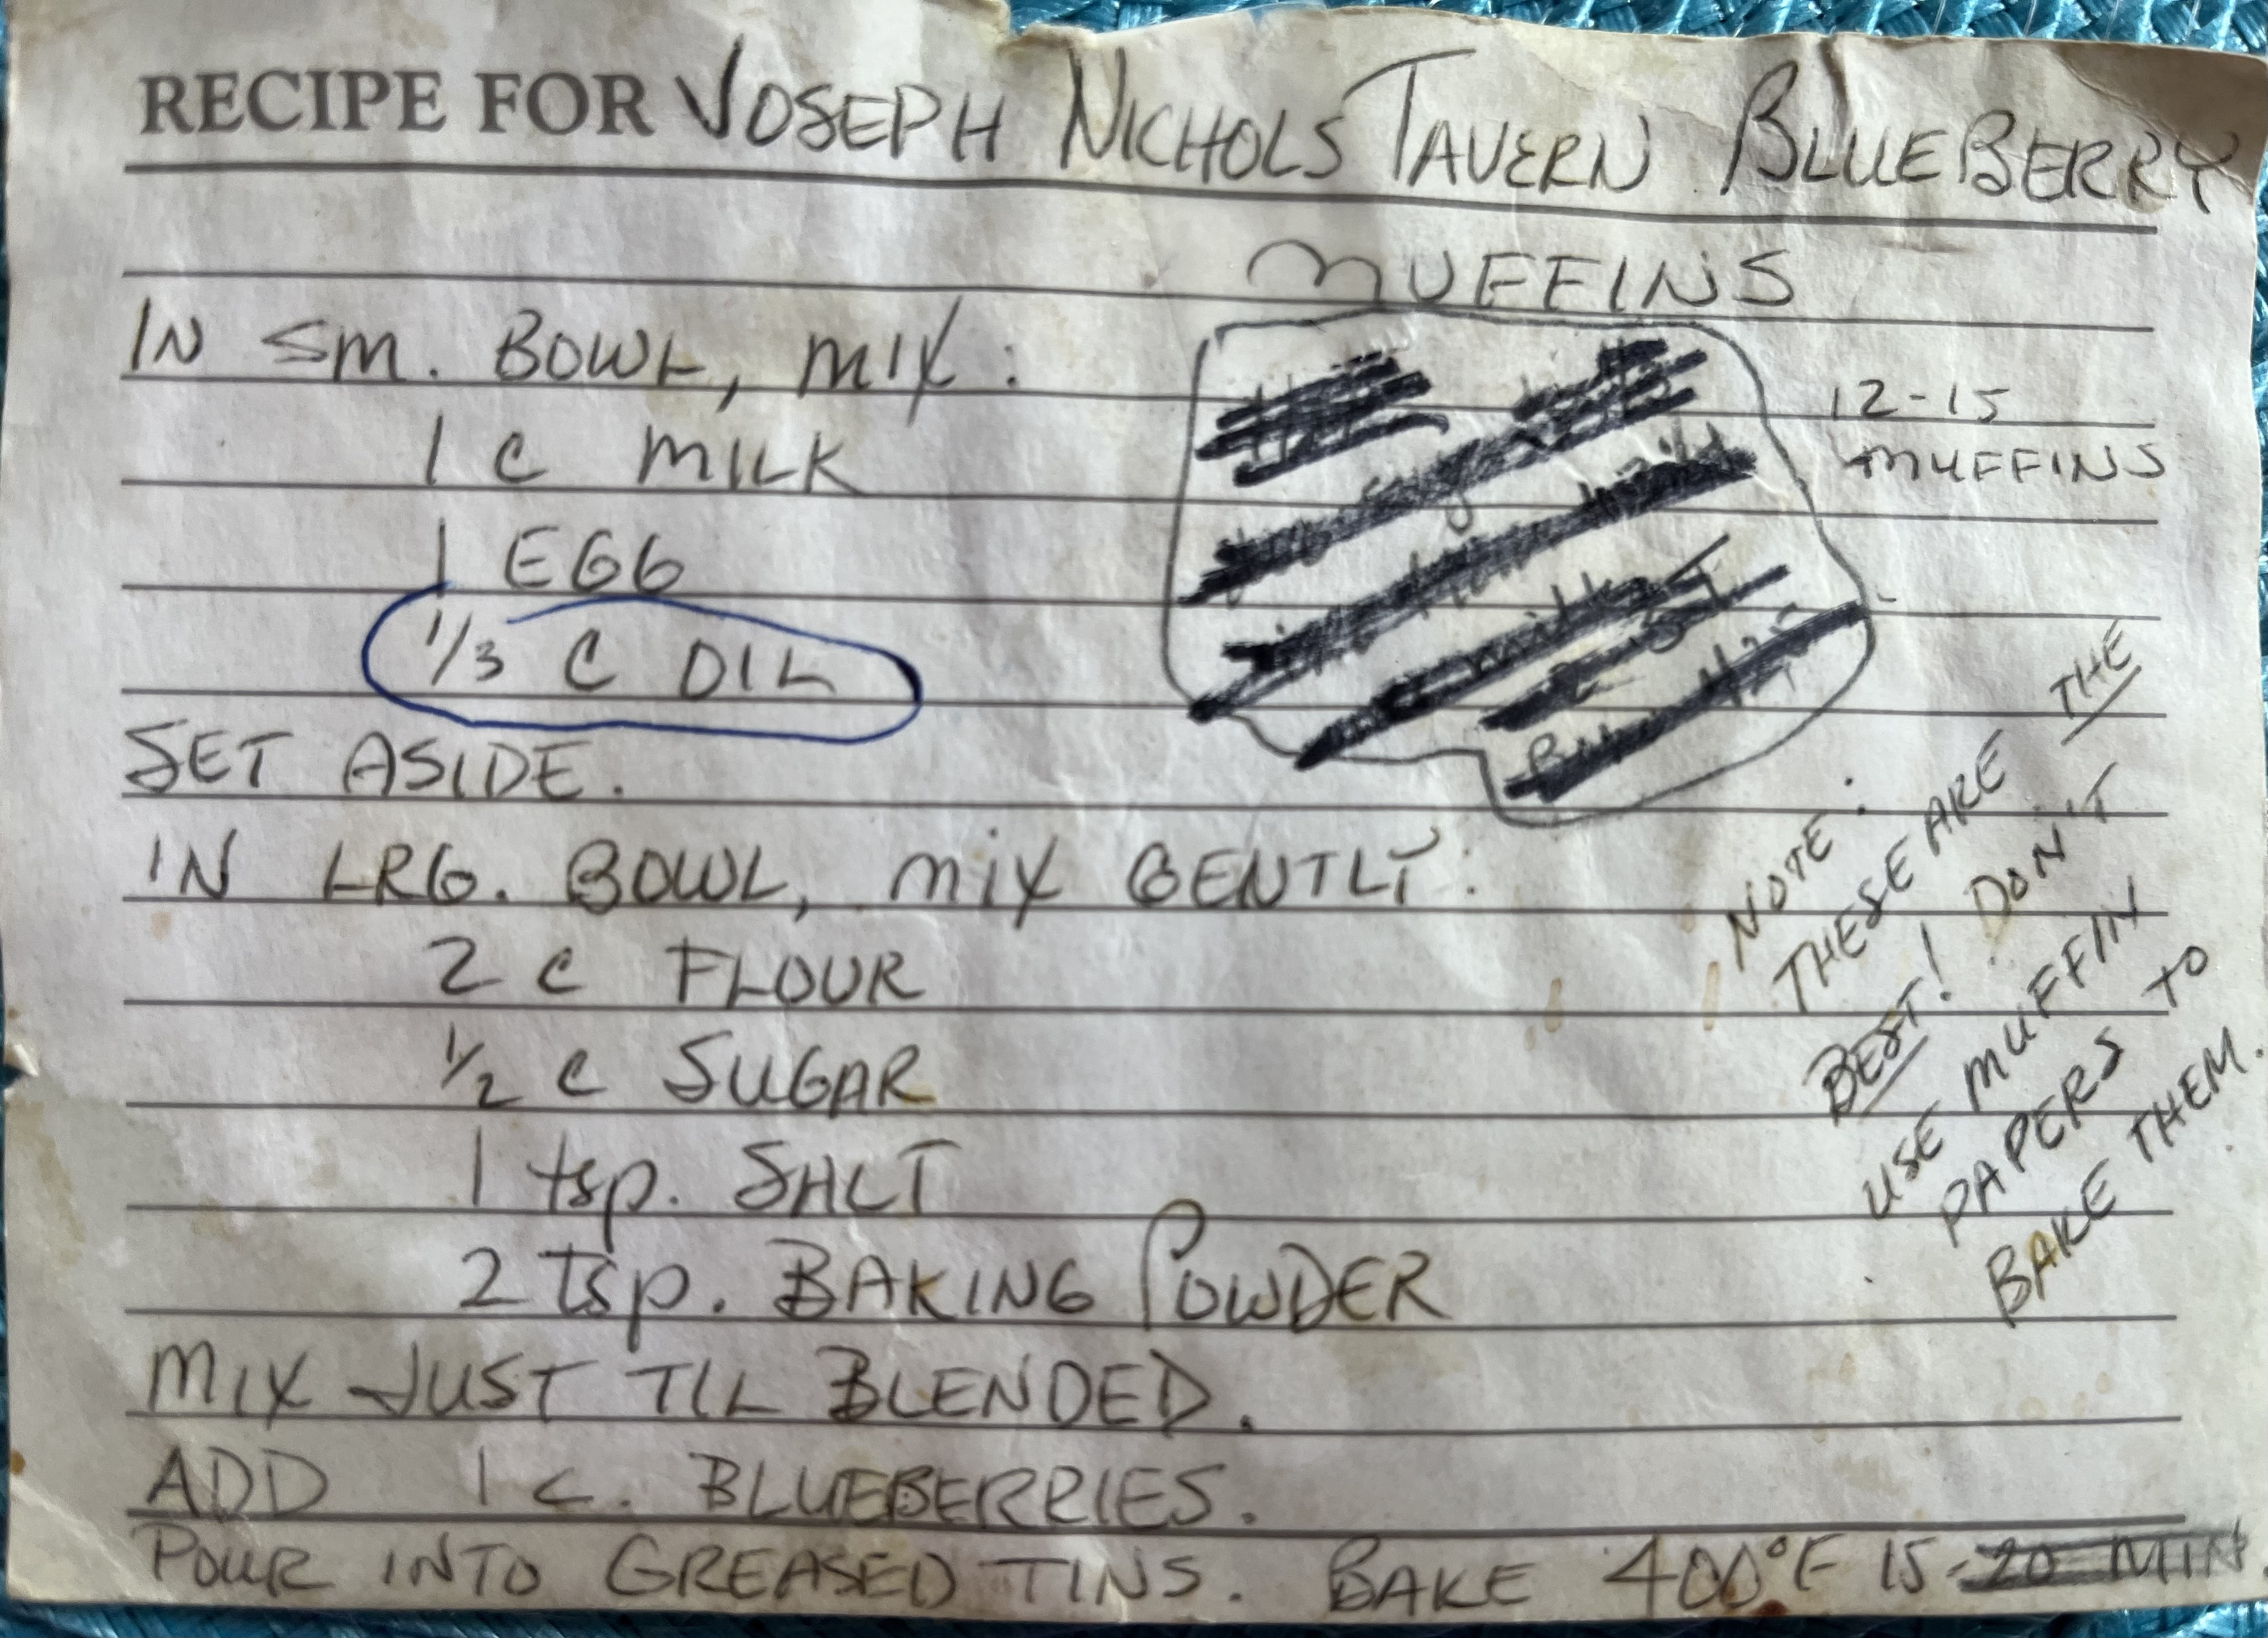 RECIPE FOR JOSEPH NICHOLS TAVERN BLUEBERRY
MUFFINS
IN SM. BOWL, MIX:
12-15
MUFFINS
1 C MILK
1 EGG
1/3 C OIL
SET ASIDE.
IN LRG. BOWL, MIX GENTLY:
2 C FLOUR
1/2 C SUGAR
1 tsp. SALT
2 tsp. BAKING POWDER
MIX JUST TIL BLENDED.
ADD 1 C. BLUEBERRIES.
POUR INTO GREASED TINS. BAKE 400°F 15-20 MIN.
NOTE:
THESE ARE THE
BEST! DON'T
USE MUFFIN
PAPERS TO
BAKE THEM.